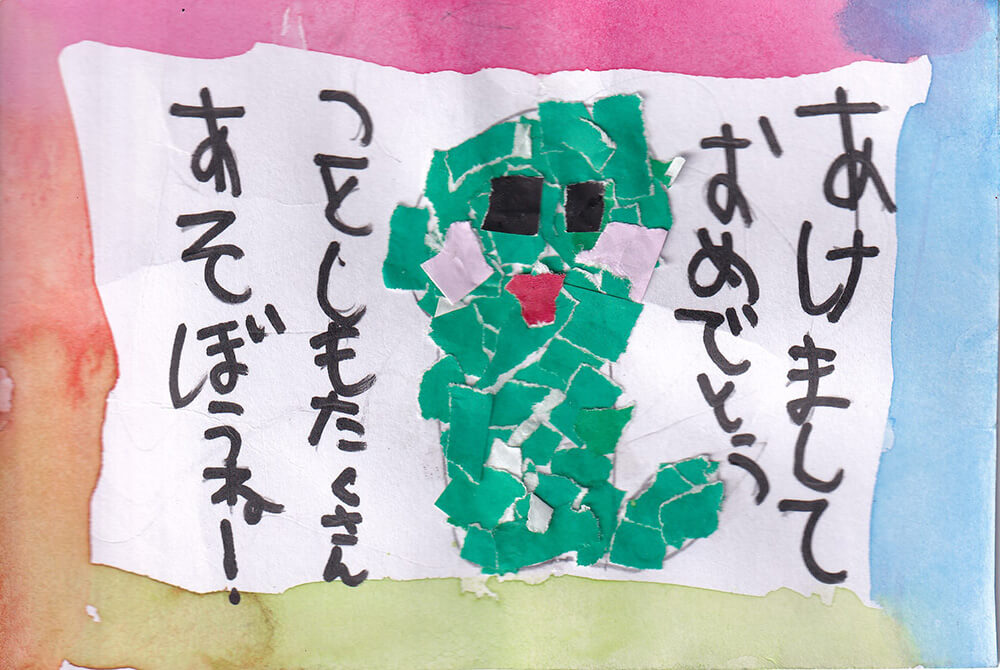 あけまして
おめでとう
ことしもたくさん
あそぼうね!